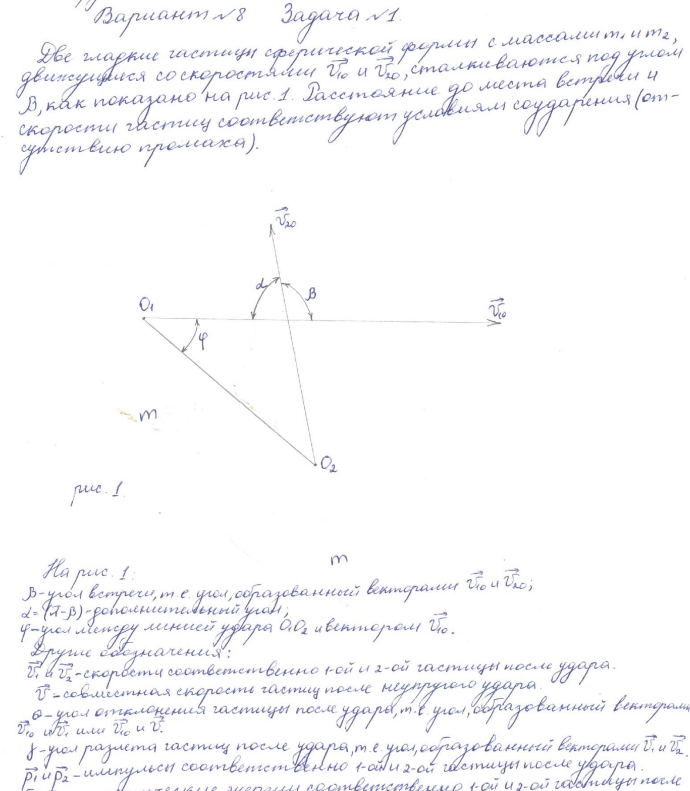 Вариант №8 Задача №1.
Две гладкие частицы сферической формы с массами m₁ и m₂,
движущиеся со скоростями v₁₀ и v₂₀, сталкиваются под углом
β, как показано на рис. 1. Расстояние до места встречи и
скорости частиц соответствуют условиям соударения (от-
сутствию промаха).
v₂₀
α
β
O₁
v₁₀
φ
m
O₂
рис. 1
m
На рис. 1:
β-угол встречи, т.е. угол, образованный векторами v₁₀ и v₂₀;
α=(π-β)-дополнительный угол;
φ-угол между линией удара O₁O₂ и вектором v₁₀.
Другие обозначения:
v₁ и v₂-скорости соответственно 1-ой и 2-ой частицы после удара.
v-совместная скорость частиц после неупругого удара.
θ-угол отклонения частицы после удара, т.е. угол, образованный векторами
v₁₀ и v₁ или v₁₀ и v.
γ-угол разлета частиц после удара, т.е. угол, образованный векторами v₁ и v₂.
p₁ и p₂-импульсы соответственно 1-ой и 2-ой частицы после удара.
энергии соответственно 1-ой и 2-ой частицы после